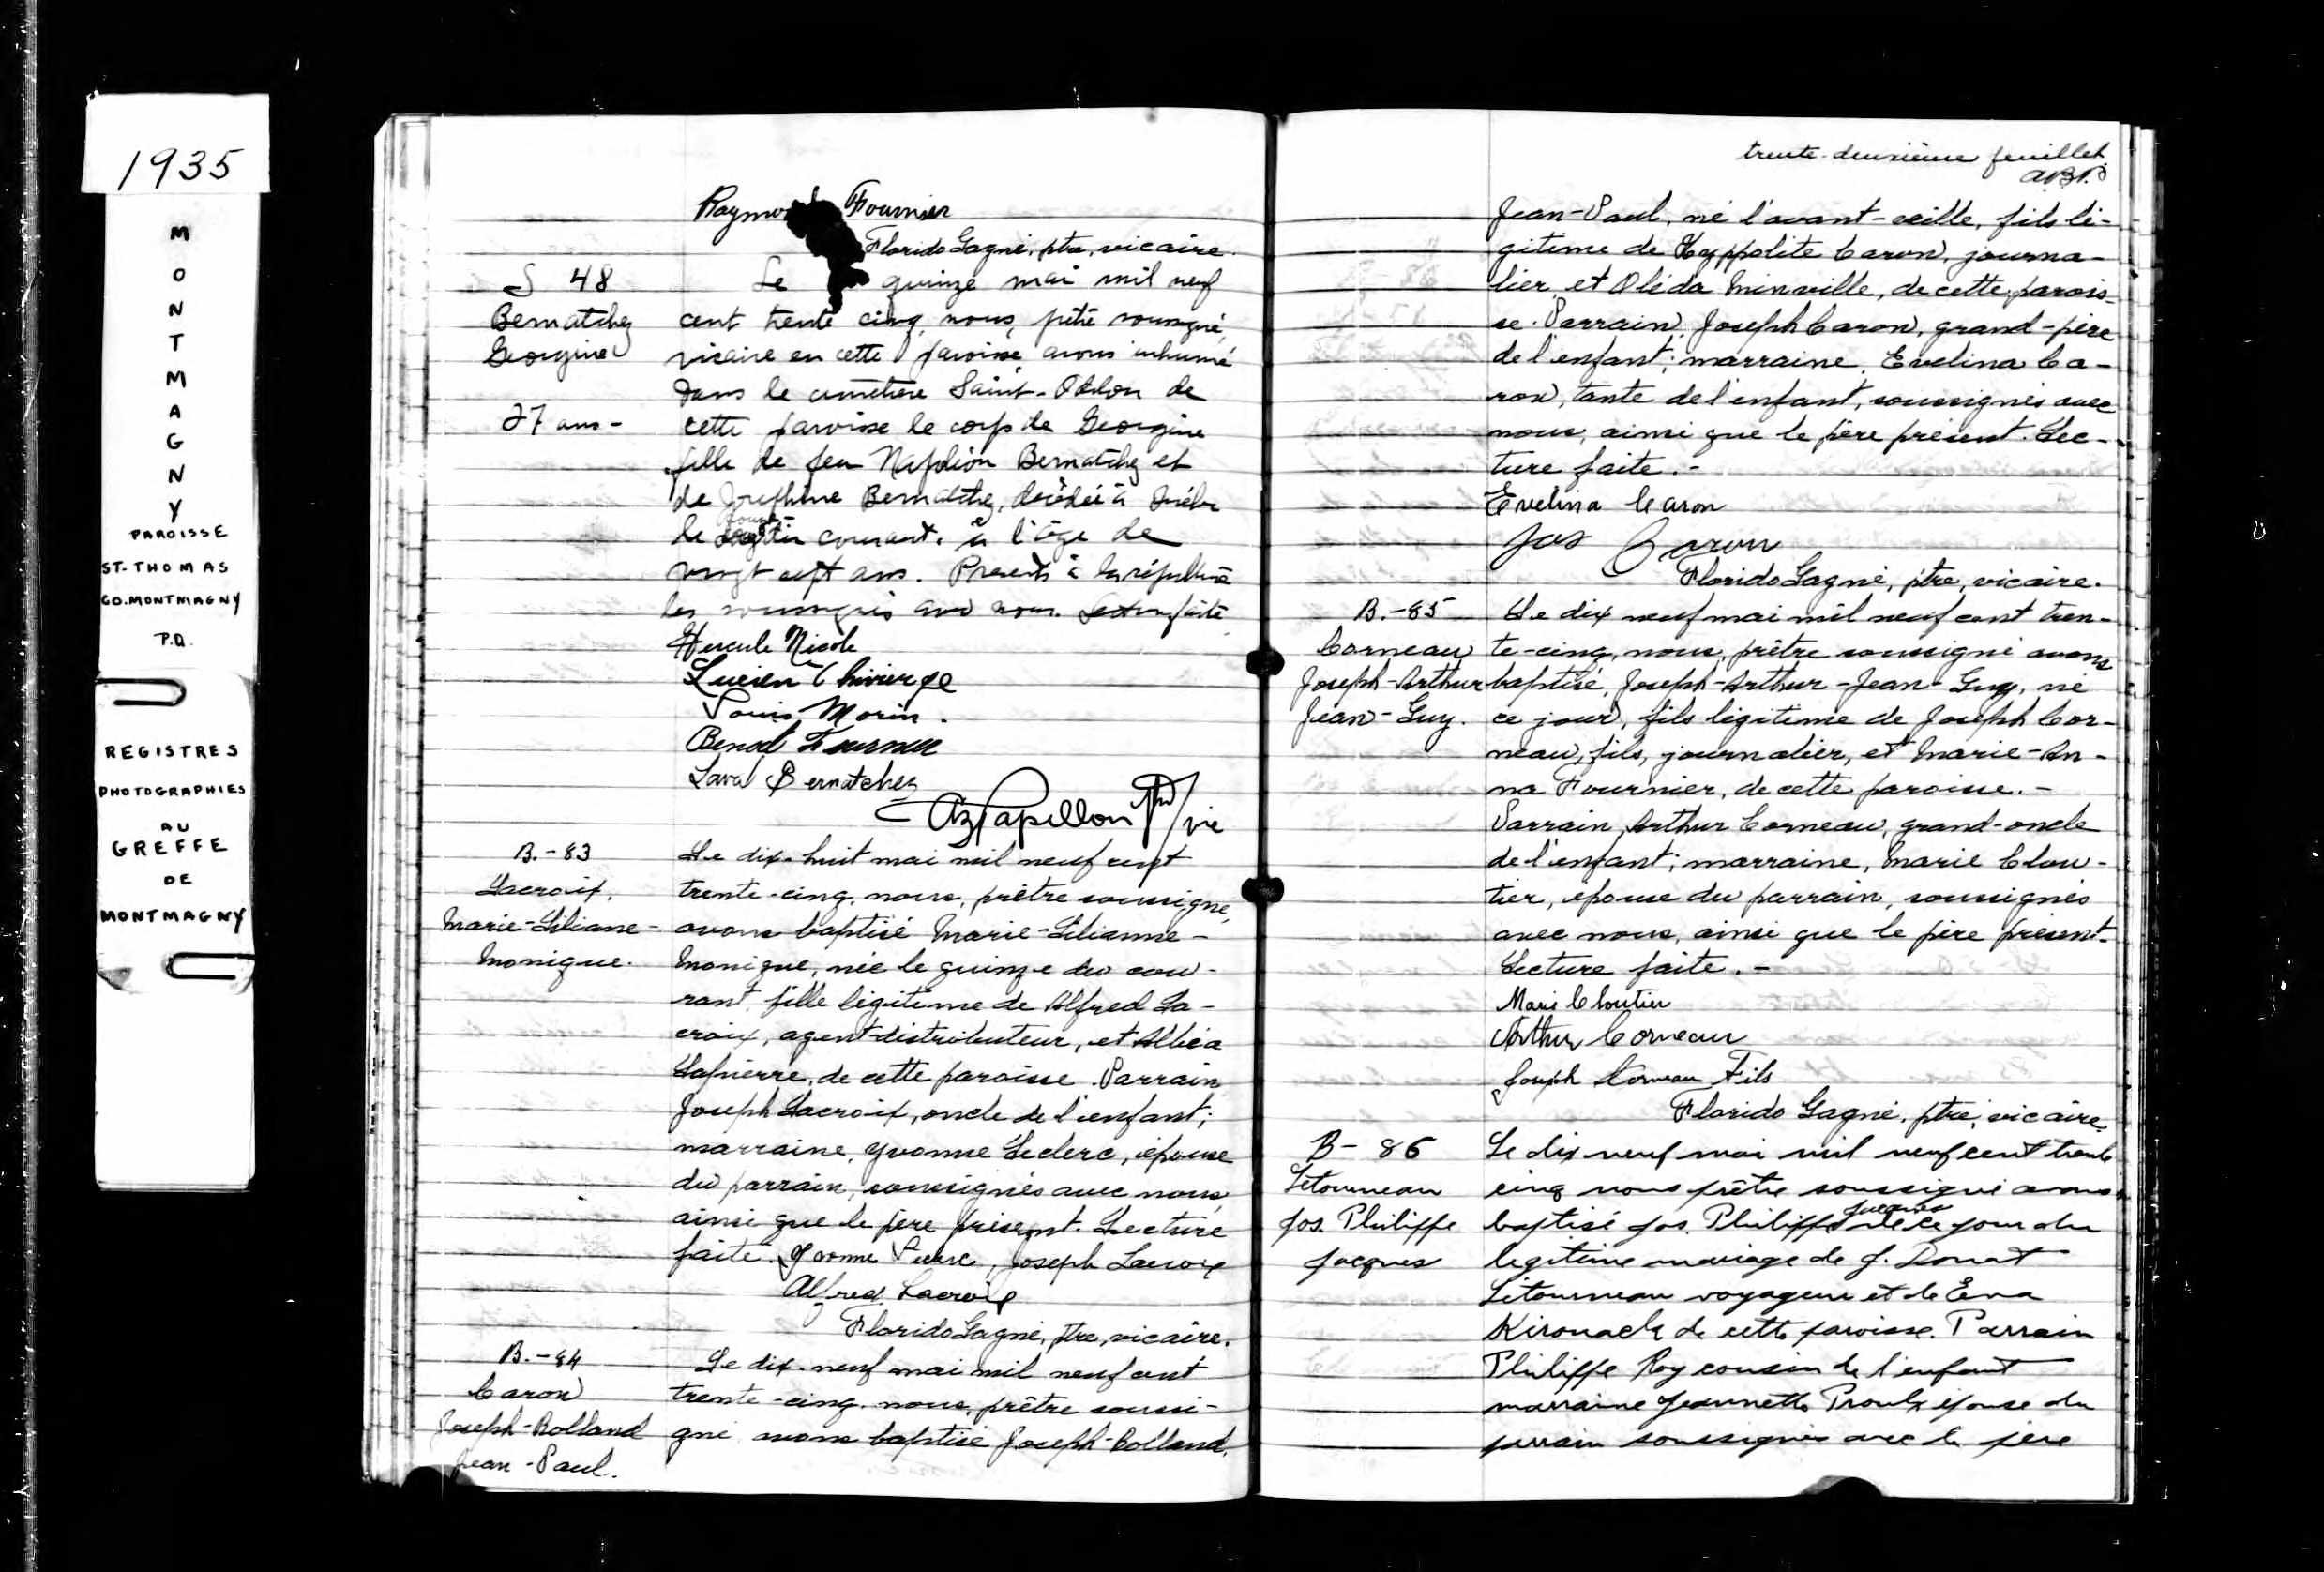 1935
MONTMAGNY
PAROISSE
ST-THOMAS
CO. MONTMAGNY
P.Q.
REGISTRES
PHOTOGRAPHIES
AU
GREFFE
DE
MONTMAGNY
Fournier
Florido Gagné, ptre, vicaire.
S 48
Bernatchez
Georgine
27 ans -
Le quinze mai mil neuf
cent trente cinq, nous, prêtre soussigné,
vicaire en cette paroisse avons inhumé
dans le cimetière Saint-Odilon de
cette paroisse le corps de Georgine
fille de feu Napoléon Bernatchez et
de Joséphine Bernatchez, décédée à Québec
le douze courant, à l'âge de
vingt sept ans. Présents à la sépulture
les soussignés avec nous. Lecture faite
Hercule Nicole
Lucien Thivierge
Louis Morin.
Benoit Fournier
Laval Bernatchez
Papillon ptre vic
B.-83
Lacroix,
Marie-Liliane-
Monique.
Le dix-huit mai mil neuf cent
trente-cinq, nous, prêtre soussigné,
avons baptisé Marie-Lilianne-
Monique, née le quinze du cou-
rant, fille légitime de Alfred La-
croix, agent-distributeur, et Albéa
Lapierre, de cette paroisse. Parrain
Joseph Lacroix, oncle de l'enfant;
marraine, Yvonne Leclerc, épouse
du parrain, soussignés avec nous,
ainsi que le père présent. Lecture
faite. Yvonne Joseph Lacroix
Alfred Lacroix
Florido Gagné, ptre, vicaire.
B.-84
Caron
Joseph-Rolland
Jean-Paul.
Le dix-neuf mai mil neuf cent
trente-cinq, nous, prêtre soussi-
gné avons baptisé Joseph-Rolland,
trente-deuxième feuillet.
Jean-Paul, né l'avant-veille, fils lé-
gitime de Hyppolite Caron, journa-
lier, et Oléda Minville, de cette parois-
se. Parrain, Joseph Caron, grand-père
de l'enfant; marraine, Evelina Ca-
ron, tante de l'enfant, soussignés avec
nous, ainsi que le père présent. Lec-
ture faite.-
Evelina Caron
Jos Caron
Florido Gagné, ptre, vicaire.
B.-85
Corneau
Joseph-Arthur
Jean-Guy.
Le dix neuf mai mil neuf cent tren-
te-cinq, nous, prêtre soussigné avons
baptisé, Joseph-Arthur-Jean-Guy, né
ce jour, fils légitime de Joseph Cor-
neau, fils, journalier, et Marie-An-
na Fournier, de cette paroisse.-
Parrain, Arthur Corneau, grand-oncle
de l'enfant; marraine, Marie Clou-
tier, épouse du parrain, soussignés
avec nous, ainsi que le père présent.
Lecture faite.-
Marie Cloutier
Arthur Corneau
Joseph Corneau Fils
Florido Gagné, ptre, vicaire.
B- 86
Létourneau
Jos. Philippe
Jacques
Le dix neuf mai mil neuf cent trente
cinq nous prêtre soussigné avons
baptisé Jos. Philippe Jacques né ce jour du
légitime mariage de J. Donat
Létourneau voyageur et de Eva
Kirouack de cette paroisse. Parrain
Philippe Roy cousin de l'enfant
marraine Jeannette Proulx épouse du
parrain soussignés avec le père